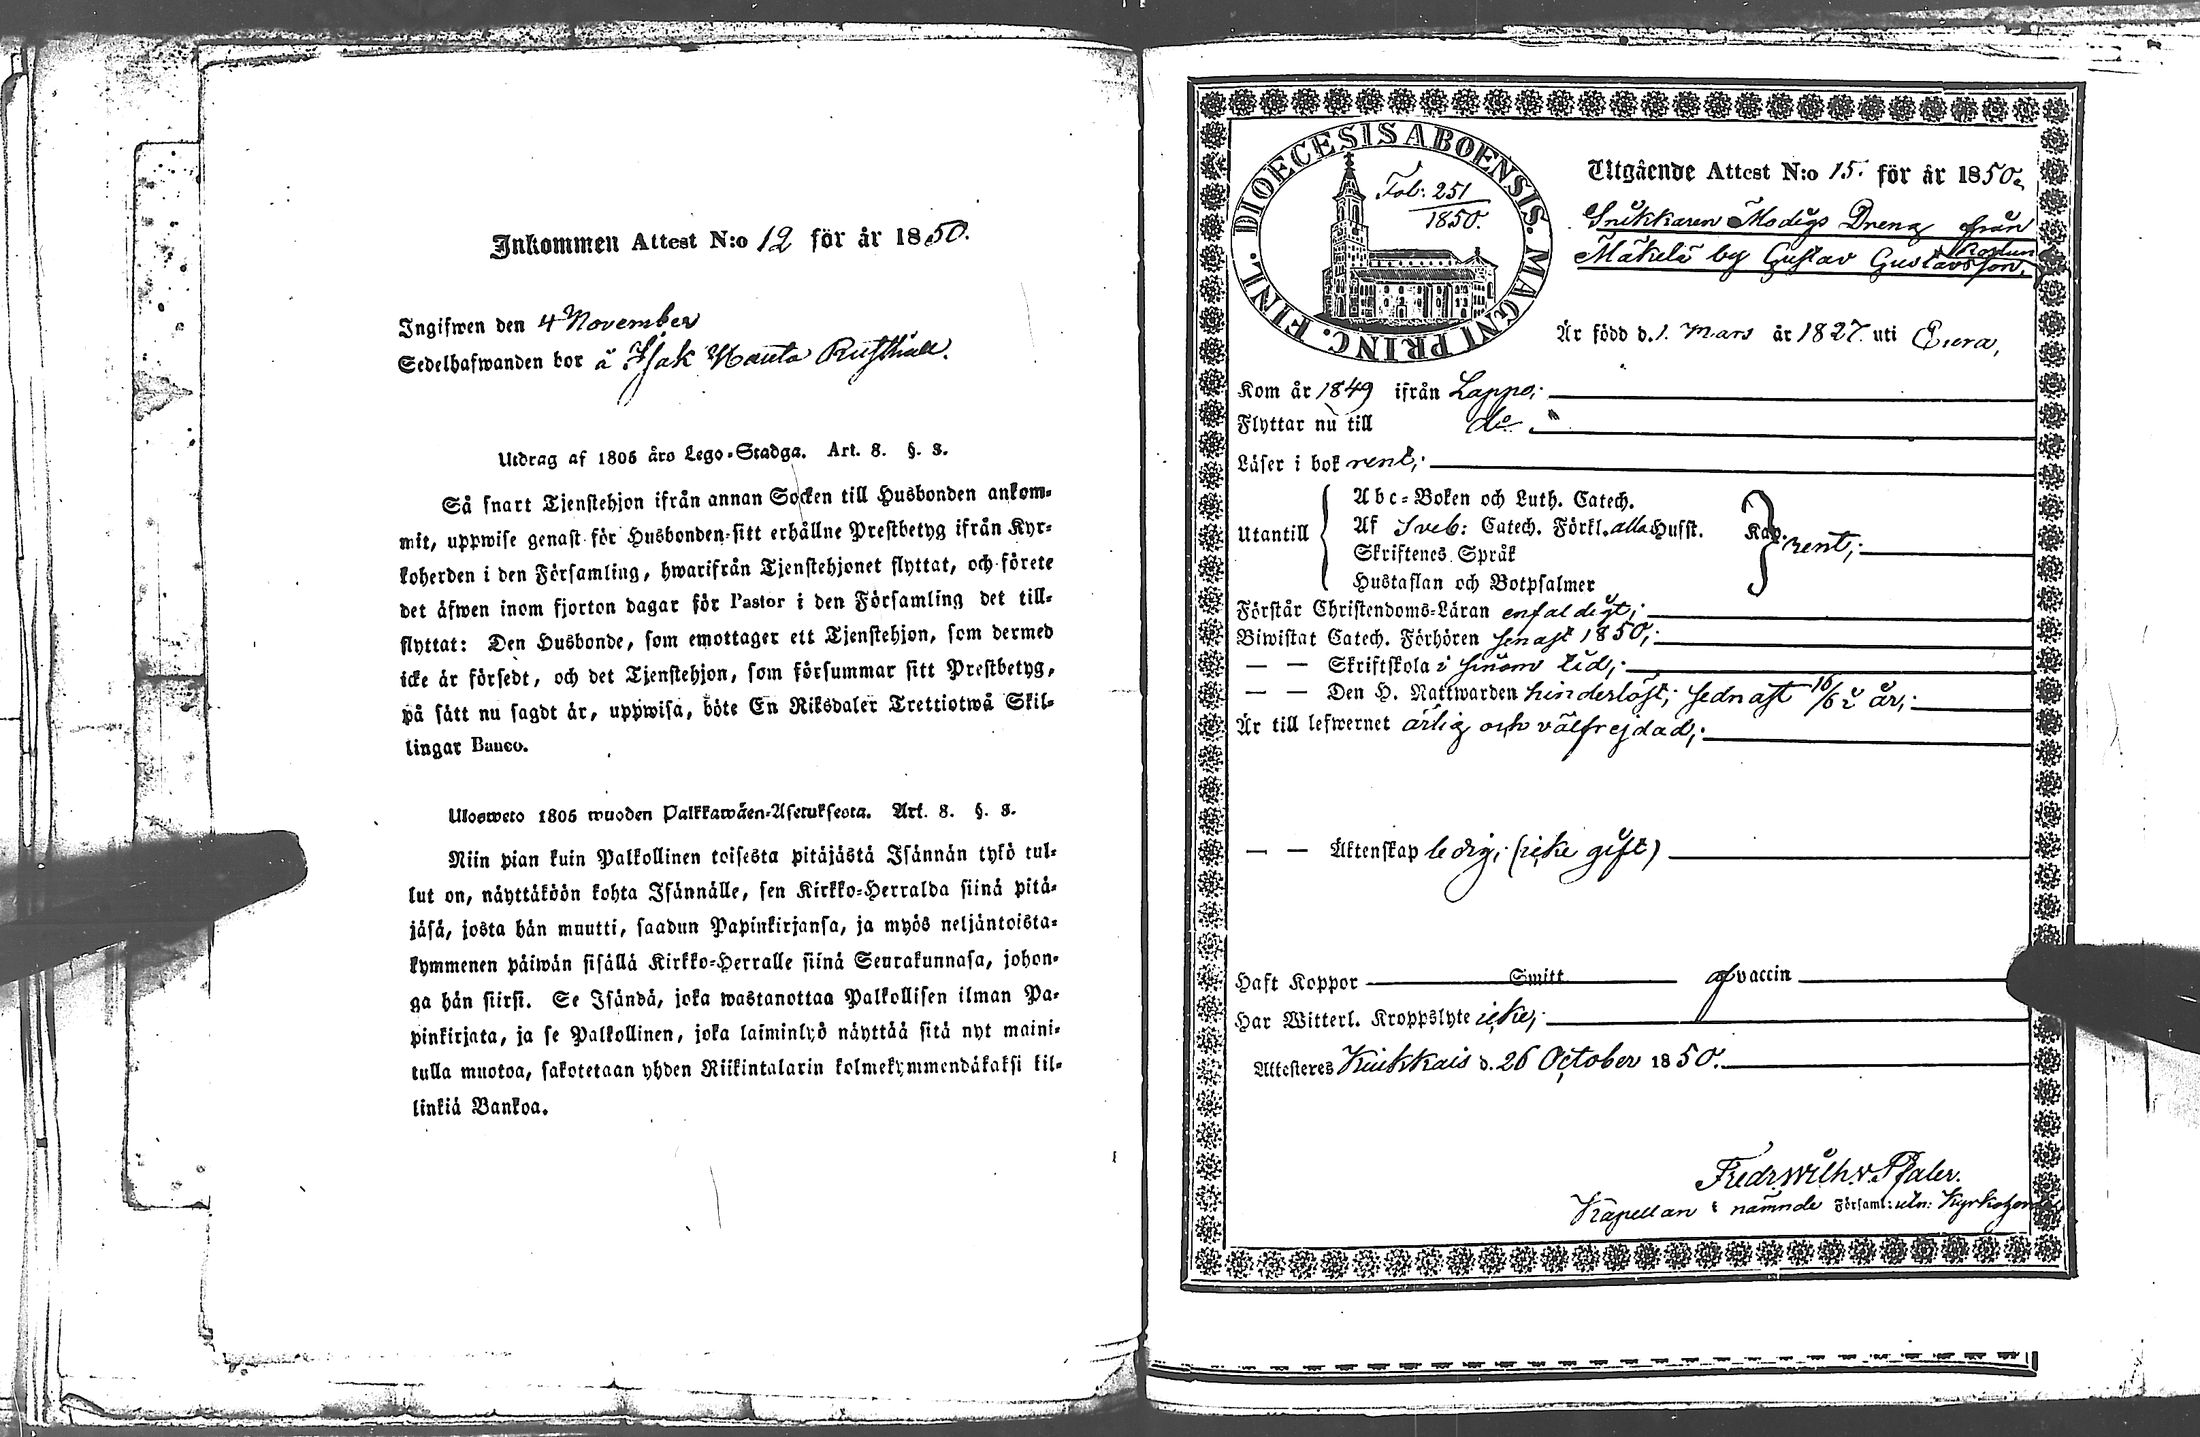 Inkommen Attest N:o 12 för år 1850.
Ingifwen den 4 November
Sedelhafwanden bor å Isak Nauta Rusthåll.
Utdrag af 1805 års Lego-Stadga. Art. 8. §. 3.
Så snart Tjenstehjon ifrån annan Socken till Husbonden ankom-
mit, uppwise genast för Husbonden sitt erhållne Prestbetyg ifrån Kyr-
koherden i den Församling, hwarifrån Tjenstehjonet flyttat, och förete
det äfwen inom fjorton dagar för Pastor i den Församling det till-
flyttat: Den Husbonde, som emottager ett Tjenstehjon, som dermed
icke är försedt, och det Tjenstehjon, som försummar sitt Prestbetyg,
på sätt nu sagdt är, uppwisa, böte En Riksdaler Trettiotwå Skil-
lingar Banco.
Ulosweto 1805 wuoden Palkkawäen-Asetuksesta. Art. 8. §. 3.
Niin pian kuin Palkollinen toisesta pitäjästä Isännän tykö tul-
lut on, näyttäköön kohta Isännälle, sen Kirkko-Herralda siinä pitä-
jäsä, josta hän muutti, saadun Papinkirjansa, ja myös neljäntoista-
kymmenen päiwän sisällä Kirkko-Herralle siinä Seurakunnasa, johon-
ga hän siirsi. Se Isändä, joka wastanottaa Palkollisen ilman Pa-
pinkirjata, ja se Palkollinen, joka laiminlyö näyttää sitä nyt maini-
tulla muotoa, sakotetaan yhden Riikintalarin kolmekymmendäkaksi kil-
linkiä Bankoa.
DIOECESIS ABOENSIS. MAGNI PRINC. FINL.
Fol: 251
1850.
Utgående Attest N:o 15. för år 1850.
Snikkaren Modigs Dreng från
Mäkelä by Gustav Gustavsson,
Är född d. 1. Mars år 1827. uti Eura,
Kom år 1849 ifrån Lappo;
Flyttar nu till d:o
Läser i bok rent;
Utantill
Abc-Boken och Luth. Catech.
Af Sveb: Catech. Förkl. alla Hufst. Kap. rent;
Skriftenes Språk
Hustaflan och Botpsalmer
Förstår Christendoms-Läran enfaldigt;
Biwistat Catech. Förhören senast 1850;
— — Skriftskola i sinom tid;
— — Den H. Nattwarden hinderlöst; sednast 16/6 i år;
Är till lefwernet ärlig och välfrejdad;
— — Äktenskap ledig; (icke gift)
Haft Koppor Smitt af vaccin
Har Witterl. Kroppslyte icke;
Attesteres Kiukkais d. 26 October 1850.
Fredr. Wilh. v. Pfaler.
Kapellan i nämnde Församl: